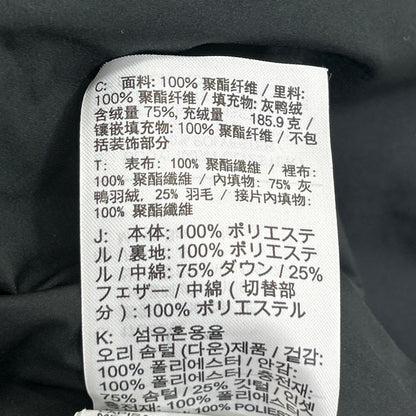 C: 面料: 100% 聚酯纤维 / 里料:
100% 聚酯纤维 / 填充物: 灰鸭绒
含绒量 75%, 充绒量 185.9 克 /
镶嵌填充物: 100% 聚酯纤维 / 不包
括装饰部分
T: 表布: 100% 聚酯纖維 / 裡布:
100% 聚酯纖維 / 內填物: 75% 灰
鴨羽絨, 25% 羽毛 / 接片內填物:
100% 聚酯纖維
J: 本体: 100% ポリエステ
ル / 裏地: 100% ポリエステ
ル / 中綿: 75% ダウン / 25%
フェザー / 中綿 (切替部
分): 100% ポリエステル
K: 섬유혼용율
오리 솜털 (다운)제품 / 겉감:
100% 폴리에스터 / 안감:
100% 폴리에스터 / 충전재:
75% 솜털 / 25% 깃털 / 인셋
100% 폴리에스터